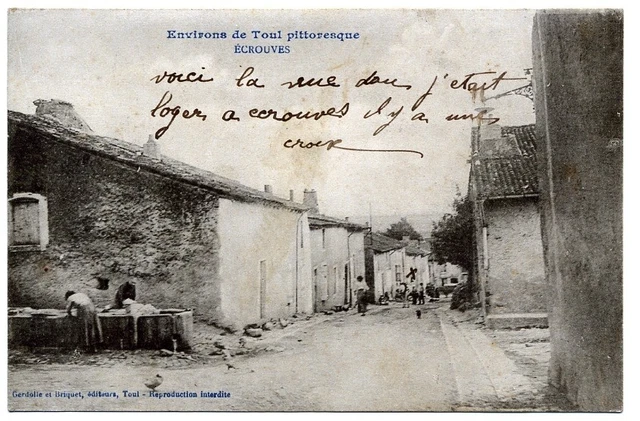 Environs de Toul pittoresque
ÉCROUVES
voici la rue dou j'etait
loger a ecrouves il y a une
croix
Gerdolle et Briquet, éditeurs, Toul - Reproduction interdite